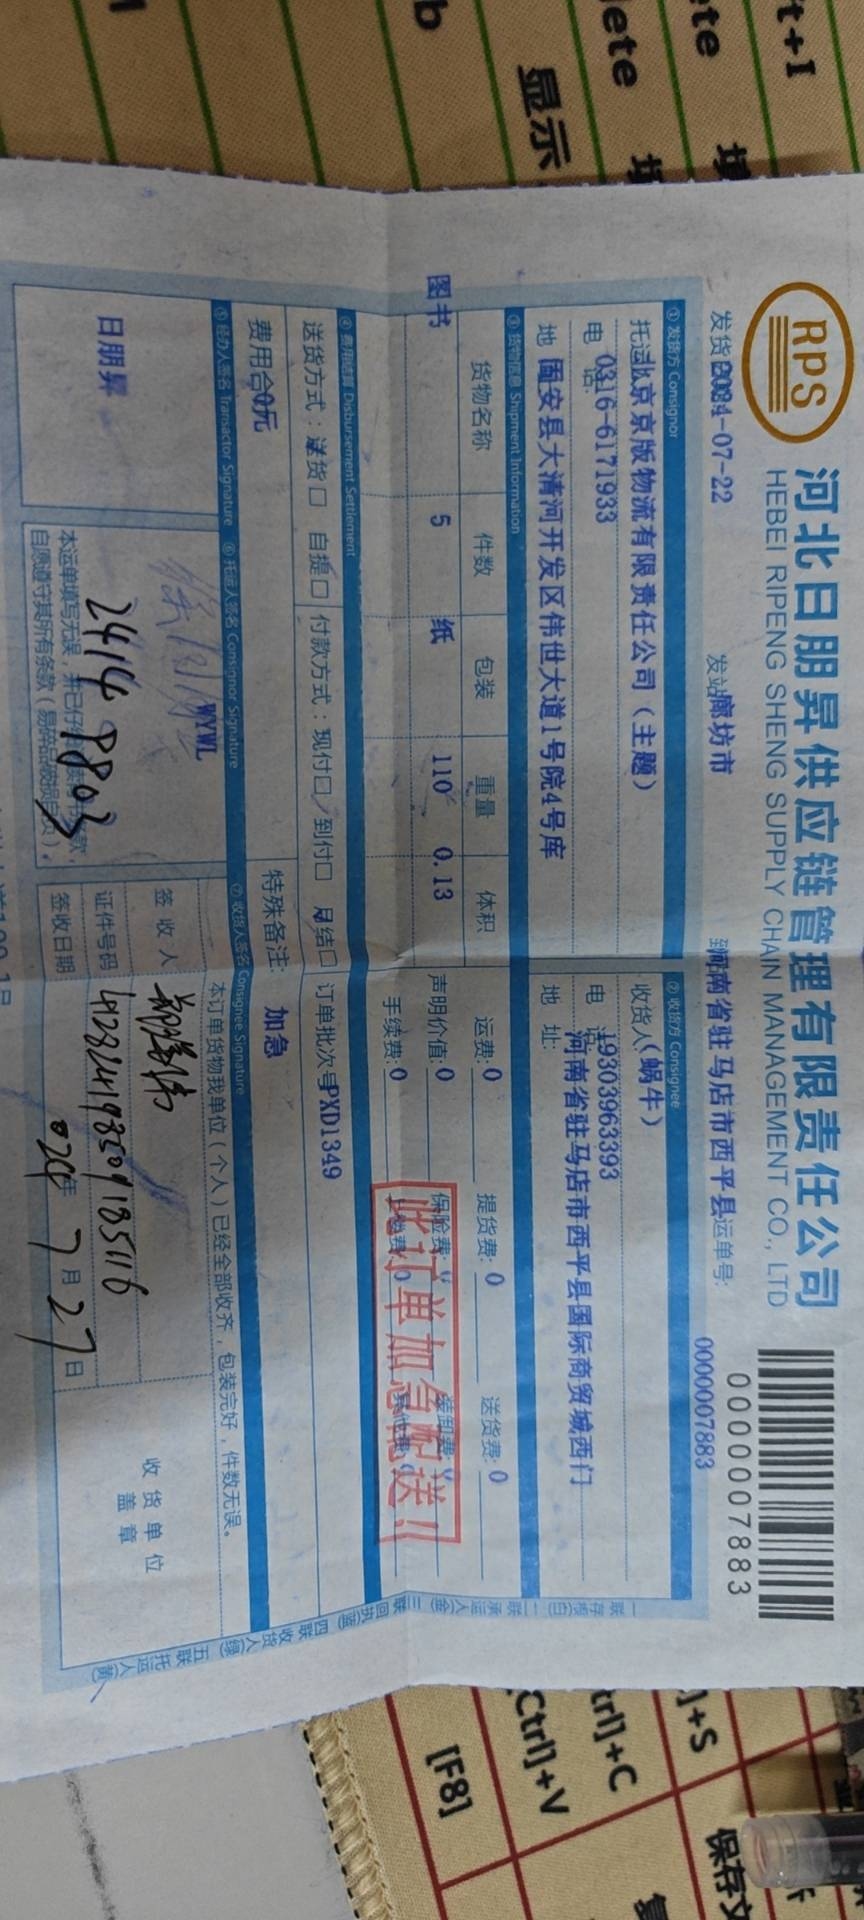 RPS
河北日朋昇供应链管理有限责任公司
HEBEI RIPENG SHENG SUPPLY CHAIN MANAGEMENT CO., LTD
0000007883
发货 2024-07-22
发站 廊坊市
到 河南省驻马店市西平县
运单号: 0000007883
① 发货方 Consignor
② 收货方 Consignee
托运 北京京版物流有限责任公司（主题）
收货人 （蜗牛）
电话: 0316-6171933
电话: 19303963393
地 固安县大清河开发区伟世大道1号院4号库
地 址: 河南省驻马店市西平县国际商贸城西门
③ 货物信息 Shipment Information
货物名称 件数 包装 重量 体积
运费: 0 提货费: 0 送货费: 0
图书 5 纸 110 0.13
声明价值: 0 保险费: 装卸费:
手续费: 0 0 其他费:
此订单加急配送!!
④ 费用结算 Disbursement Settlement
送货方式：送货□ 自提□ 付款方式：现付□ 到付□ 月结□ 订单批次号 PXD1349
费用合 0元
特殊备注: 加急
⑤ 经办人签名 Transactor Signature
⑥ 托运人签名 Consignor Signature
⑦ 收货人签名 Consignee Signature
日朋昇
WYWL
2414
本订单货物我单位（个人）已经全部收齐，包装完好，件数无误。
签 收 人
证件号码
签收日期 年 7 月 27 日
收货单位
盖 章
本运单填写无误，并已仔
自愿遵守其所有条款（易碎品
一联存根(白) 二联承运人(金) 三联回执(蓝) 四联收货人(绿) 五联托运人(黄)
显示
[F8]
Ctrl]+V
trl]+C
]+S
保存文